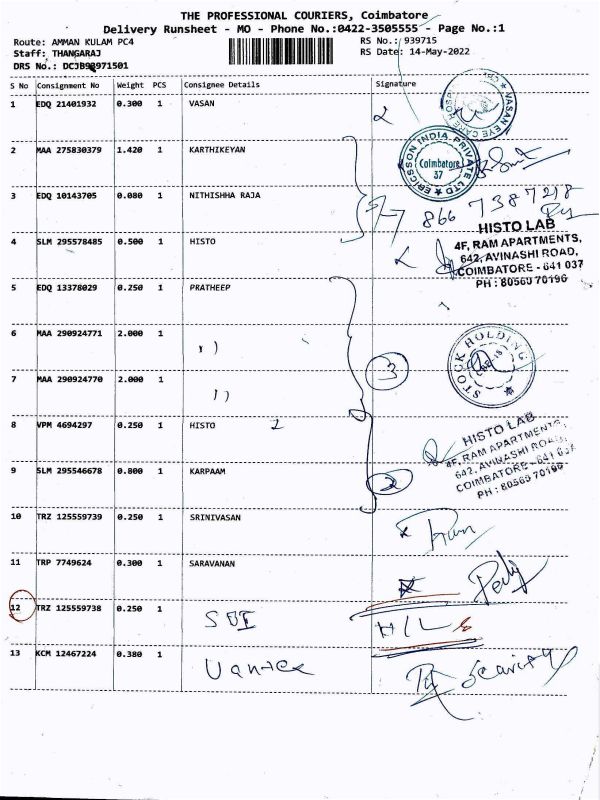 THE PROFESSIONAL COURIERS, Coimbatore
Delivery Runsheet - MO - Phone No.:0422-3505555 - Page No.:1
Route: AMMAN KULAM PC4 RS No.: 939715
Staff: THANGARAJ RS Date: 14-May-2022
DRS No.: DCJB98971501
S No Consignment No Weight PCS Consignee Details Signature
1 EDQ 21401932 0.300 1 VASAN
VASAN EYE CARE
2 MAA 275830379 1.420 1 KARTHIKEYAN
ERICSSON INDIA PRIVATE LTD
Coimbatore
37
3 EDQ 10143705 0.080 1 NITHISHHA RAJA
866 7387218
4 SLM 295578485 0.500 1 HISTO
HISTO LAB
4F, RAM APARTMENTS,
642, AVINASHI ROAD,
COIMBATORE - 641 037
PH : 80560 70196
5 EDQ 13378029 0.250 1 PRATHEEP
6 MAA 290924771 2.000 1 ")
STOCK HOLDING
7 MAA 290924770 2.000 1 ")
3
8 VPM 4694297 0.250 1 HISTO 1
HISTO LAB
4F, RAM APARTMENTS,
642, AVINASHI ROAD,
COIMBATORE - 641 037
PH : 80560 70196
9 SLM 295546678 0.800 1 KARPAAM
2
10 TRZ 125559739 0.250 1 SRINIVASAN
11 TRP 7749624 0.300 1 SARAVANAN
12 TRZ 125559738 0.250 1
H/L
13 KCM 12467224 0.380 1